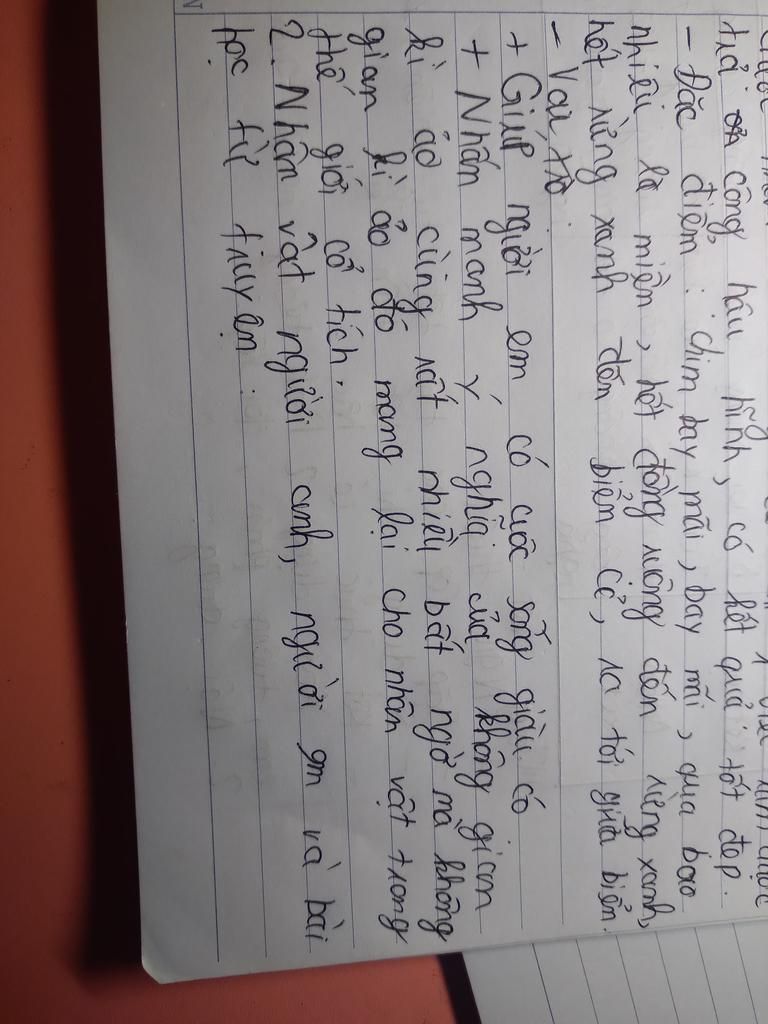 trả ơn công hậu hĩnh, có kết quả tốt đẹp.
- Đặc điểm: chim bay mãi, bay mãi, qua bao
nhiêu là miền, hết đồng ruộng đến rừng xanh,
hết rừng xanh đến biển cả, ra tới giữa biển.
- Vai trò:
+ Giúp người em có cuộc sống giàu có
+ Nhấn mạnh ý nghĩa của không gian
kì ảo cùng rất nhiều bất ngờ mà không
gian kì ảo đó mang lại cho nhân vật trong
thế giới cổ tích.
2. Nhân vật người anh, người em và bài
học từ truyện: